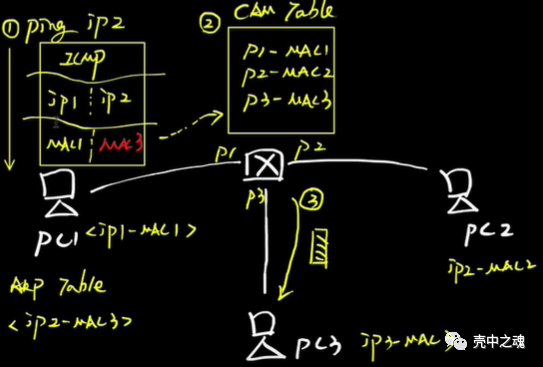 ① ping ip2
ICMP
ip1 ip2
MAC1 MAC3
② CAM Table
p1-MAC1
p2-MAC2
p3-MAC3
p1 p2
p3
③
PC1 <ip1-MAC1>
ARP Table
<ip2-MAC3>
PC2
ip2-MAC2
PC3 ip3-MAC3
壳中之魂